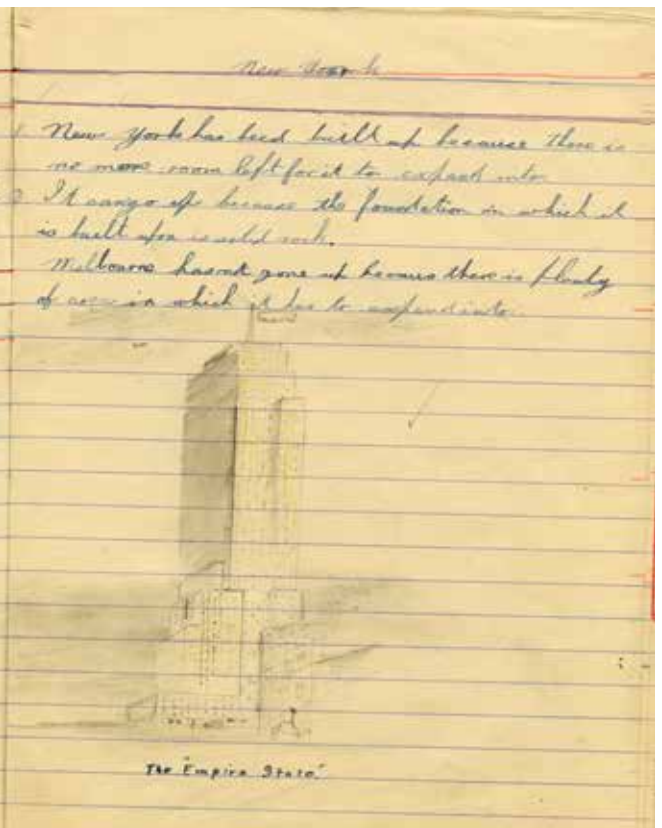 New York
1 New York has beed built up because there is
no more room left for it to expand into
2 It can go up because the foundation in which it
is built upon is solid rock.
Melbourne hasnt gone up because there is plenty
of area in which it has to expand into.
The "Empire State".